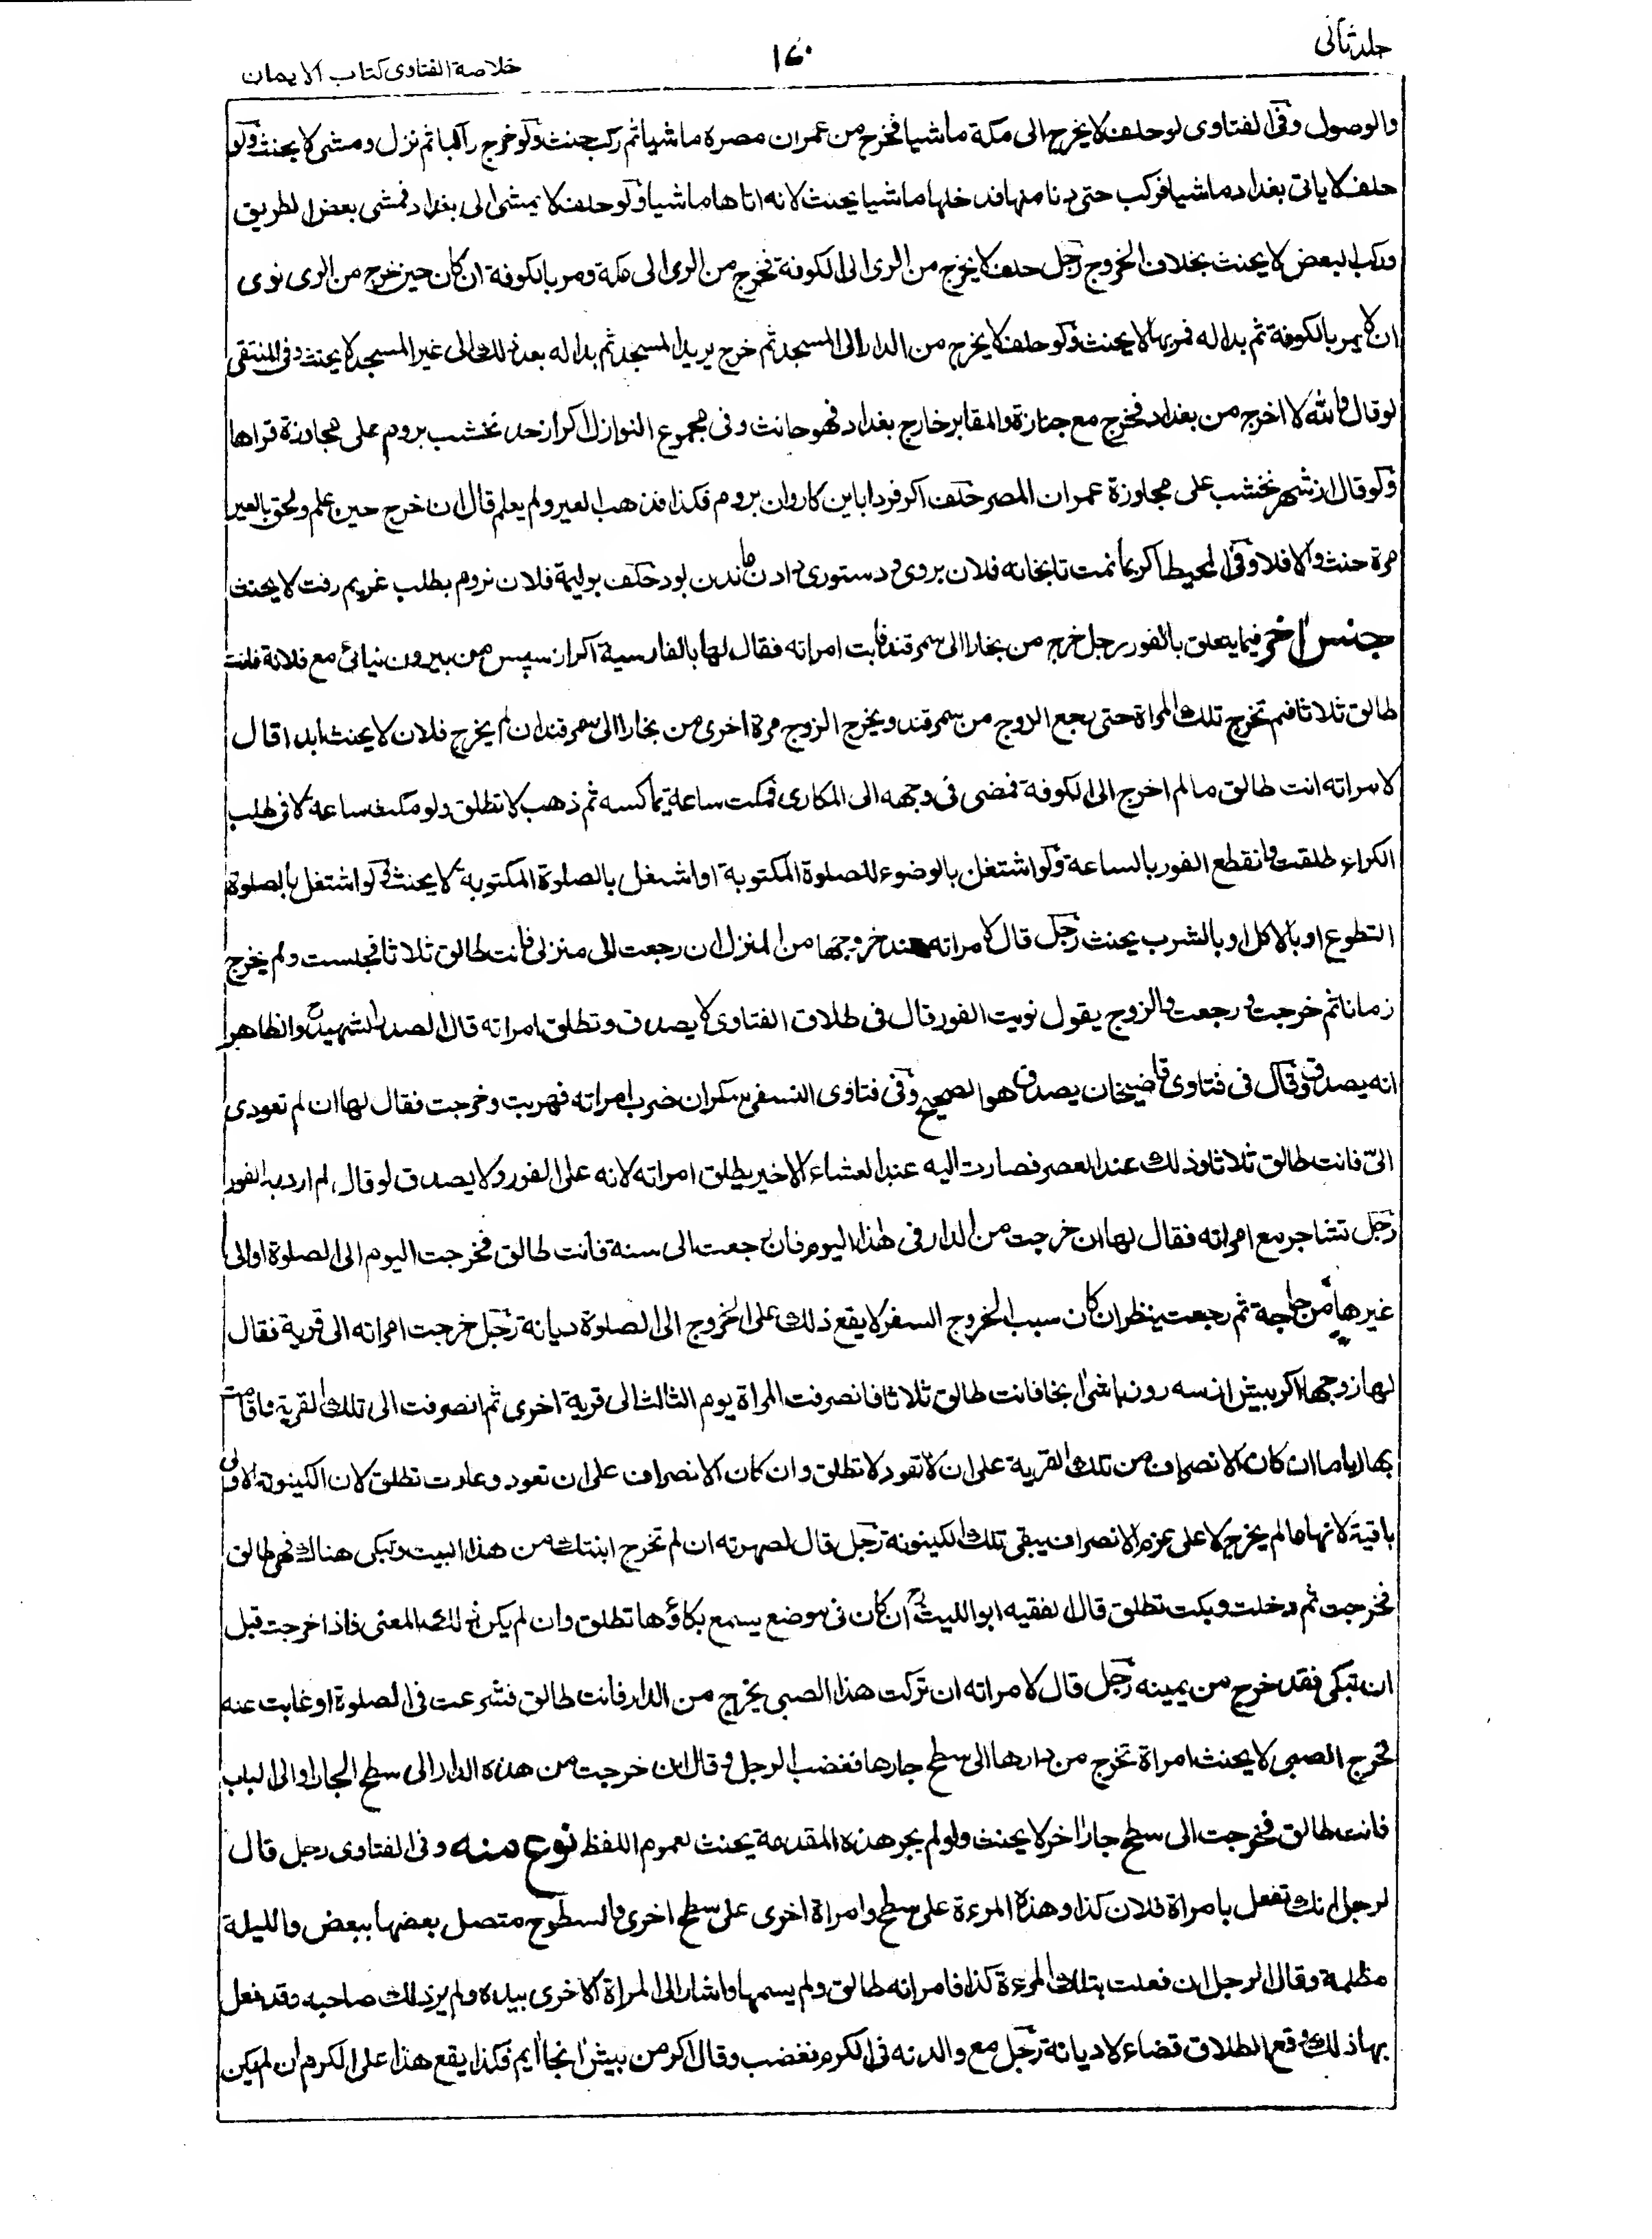 جلد ثانی
۱۷۰
خلاصة الفتاوی کتاب الایمان
والوصول وفی الفتاوی لو حلف لا یخرج الی مکة ماشیا فخرج من عمران مصره ماشیا ثم رکب حنث ولو خرج راکبا ثم نزل ومشی لا یحنث ولو
حلف لا یاتی بغداد ماشیا فرکب حتی دنا منها فدخلها ماشیا یحنث لانه اتاها ماشیا ولو حلف لا یمشی الی بغداد فمشی بعض الطریق
ورکب البعض لا یحنث بخلاف الخروج رجل حلف لا یخرج من الری الی الکوفة فخرج من الری الی مکة ومر بالکوفة ان کان حین خرج من الری نوی
ان لا یمر بالکوفة ثم بدا له فمر بها لا یحنث ولو حلف لا یخرج من الدار الی المسجد ثم خرج یرید المسجد ثم بدا له بعد ذلک الی غیر المسجد لا یحنث وفی المنتقی
لو قال والله لا اخرج من بغداد فخرج مع جنازة والمقابر خارج بغداد فهو حانث وفی مجموع النوازل اکر از حد نخشب بروم علی مجاوزة قراها
ولو قال از شهر نخشب علی مجاوزة عمران المصر حلف اکر فردا باین کاروان بروم فکذا فذهب العیر ولم یعلم قال ان خرج حین علم ولحق بالعیر
مرة حنث والا فلا وفی المحیط اکر بمانمت تا بخانه فلان بروی دستوری دادن ماندن بود حلف بولیمة فلان نروم بطلب غریم رفت لا یحنث
جنس اخر فیما یتعلق بالفور رجل خرج من بخارا الی سمرقند فابت امراته فقال لها بالفارسیة اکر از سپس من بیرون نیائی مع فلانة فانت
طالق ثلاثا فلم تخرج تلک المراة حتی رجع الزوج من سمرقند ویخرج الزوج مرة اخری من بخارا الی سمرقند ان لم یخرج فلان لا یحنث ابدا قال
لامراته انت طالق ما لم اخرج الی الکوفة فمضی فی وجهه الی المکاری فمکث ساعة یماکسه ثم ذهب لا تطلق ولو مکث ساعة لا فی طلب
الکراء طلقت وانقطع الفور بالساعة ولو اشتغل بالوضوء للصلوة المکتوبة او اشتغل بالصلوة المکتوبة لا یحنث ولو اشتغل بالصلوة
التطوع او بالاکل او بالشرب یحنث رجل قال لامراته عند خروجها من المنزل ان رجعت الی منزلی فانت طالق ثلاثا فجلست ولم یخرج
زمانا ثم خرجت ورجعت والزوج یقول نویت الفور قال فی طلاق الفتاوی لا یصدق وتطلق امراته قال الصدر الشهید والظاهر
انه یصدق وقال فی فتاوی قاضیخان یصدق هو الصحیح وفی فتاوی النسفی سکران ضرب امراته فهربت وخرجت فقال لها ان لم تعودی
الیّ فانت طالق ثلاثا وذلک عند العصر فصارت الیه عند العشاء الاخیر یطلق امراته لانه علی الفور ولا یصدق لو قال لم ارد به الفور
رجل تشاجر مع امراته فقال لها ان خرجت من الدار فی هذا الیوم فان رجعت الی سنة فانت طالق فخرجت الیوم الی الصلوة او الی
غیرها من حاجة ثم رجعت ینظر ان کان سبب الخروج السفر لا یقع ذلک علی الخروج الی الصلوة دیانة رجل خرجت امراته الی قریة فقال
لها زوجها اکر بیش از سه روز باشی انجا فانت طالق ثلاثا فانصرفت المراة یوم الثالث الی قریة اخری ثم انصرفت الی تلک القریة فاقامت
بها ایاما ان کان الانصراف من تلک القریة علی ان لا تعود لا تطلق وان کان الانصراف علی ان تعود وعادت تطلق لان الکینونة الاولی
باقیة لانها ما لم یخرج لا علی عزم الانصراف یبقی تلک الکینونة رجل قال لصهرته ان لم تخرج ابنتک من هذا البیت وتبکی هناک فهی طالق
فخرجت ثم دخلت وبکت تطلق قال الفقیه ابو اللیث ان کان فی موضع یسمع بکاؤها تطلق وان لم یکن ذلک المعنی فاذا خرجت قبل
ان تبکی فقد خرج من یمینه رجل قال لامراته ان ترکت هذا الصبی یخرج من الدار فانت طالق فشرعت فی الصلوة او غابت عنه
فخرج الصبی لا یحنث امراة تخرج من دارها الی سطح جارها فغضب الرجل وقال ان خرجت من هذه الدار الی سطح الجار او الی الباب
فانت طالق فخرجت الی سطح جار اخر لا یحنث ولو لم یجر هذه المقدمة یحنث لعموم اللفظ نوع منه وفی الفتاوی رجل قال
لرجل انک تفعل بامراة فلان کذا وهذه المرءة علی سطح وامراة اخری علی سطح اخری والسطوح متصل بعضها ببعض واللیلة
مظلمة وقال الرجل ان فعلت بتلک المرءة کذا فامراته طالق ولم یسمها واشار الی المراة الاخری بیده ولم یر ذلک صاحبه وقد فعل
بها ذلک وقع الطلاق قضاء لا دیانة رجل مع والدته فی الکرم فغضب وقال اکر من بیش انجا ایم فکذا یقع هذا علی الکرم ان لم یکن